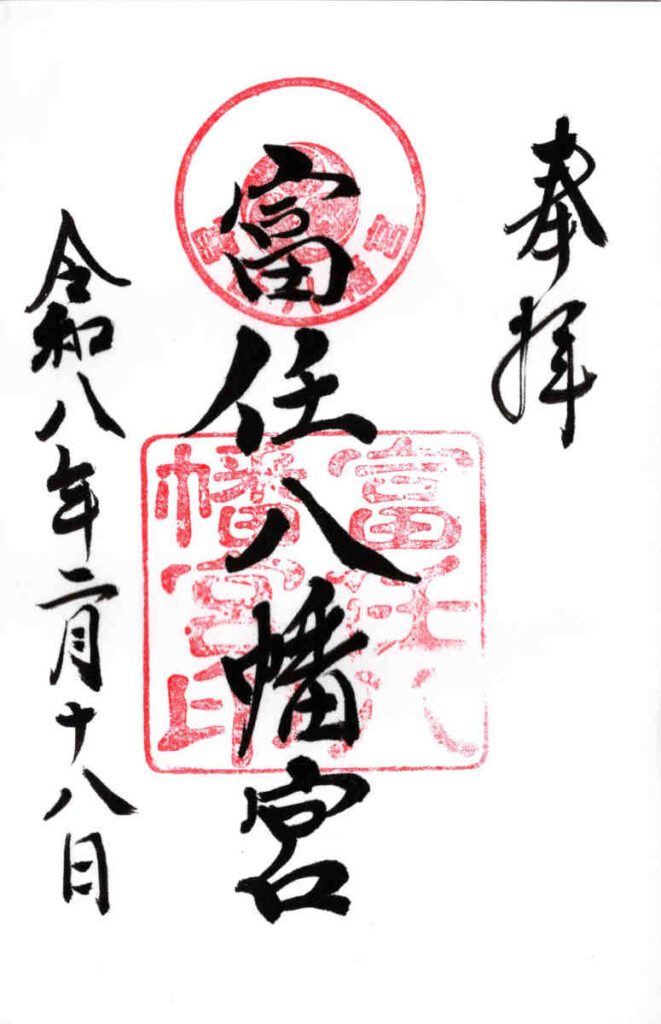 奉拝
富任八幡宮
富任八
幡宮印
令和八年二月十八日